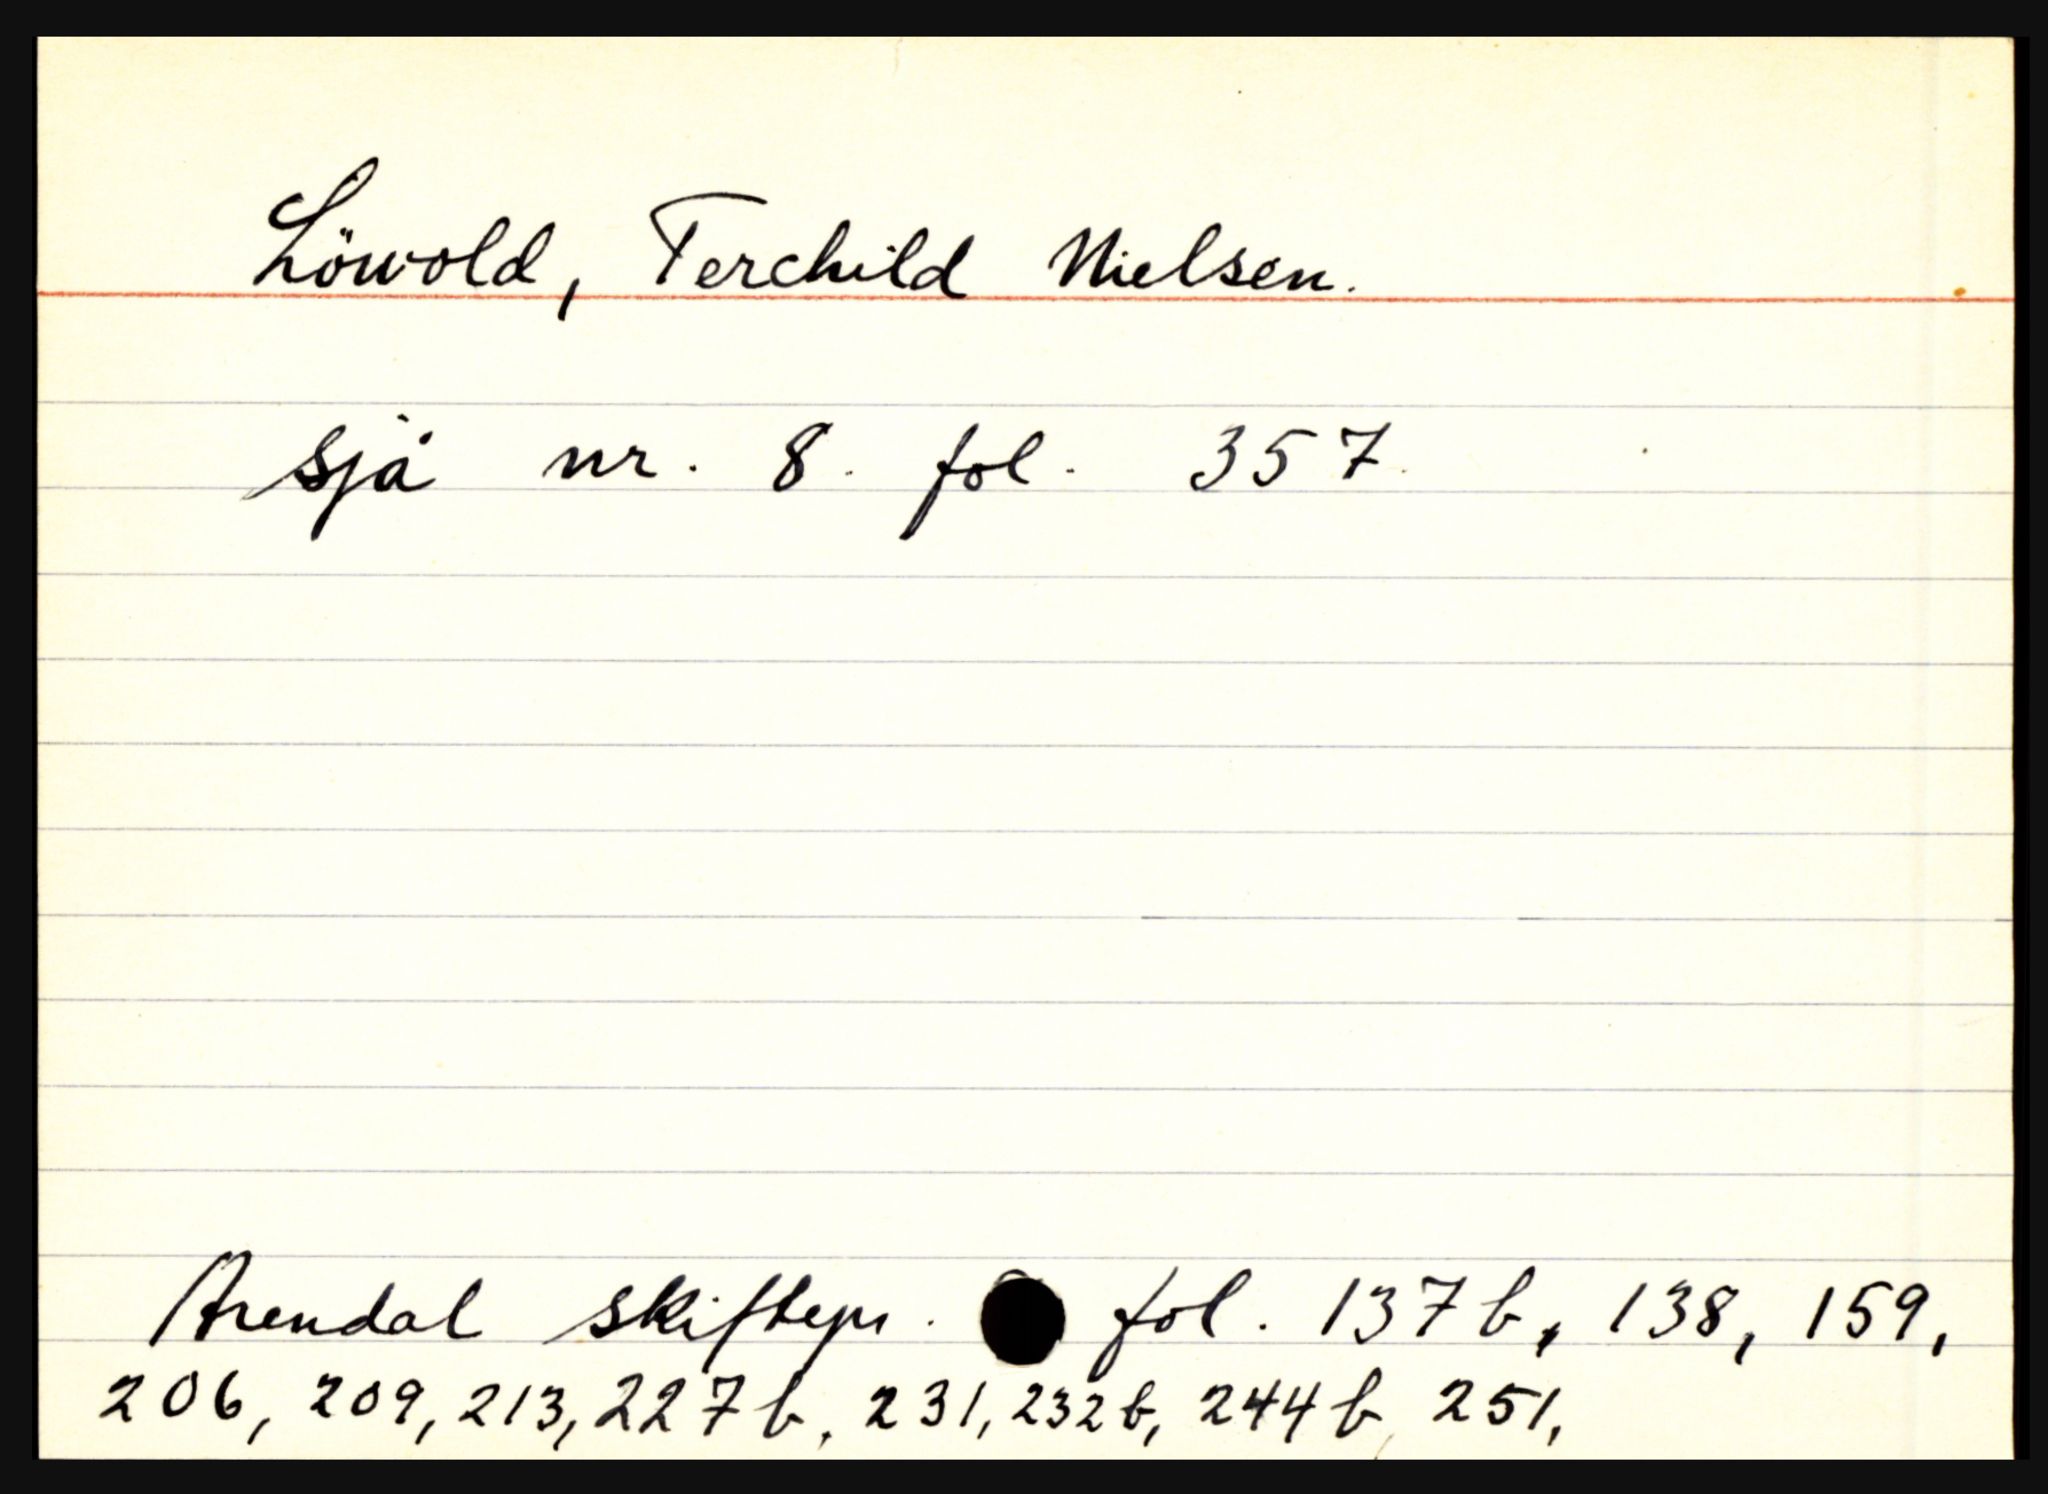 Löwold, Terchild Nielsen.
sjå nr. 8. fol. 357.
Arendal skiftepr. fol. 137b, 138, 159,
206, 209, 213, 227b, 231, 232b, 244b, 251,